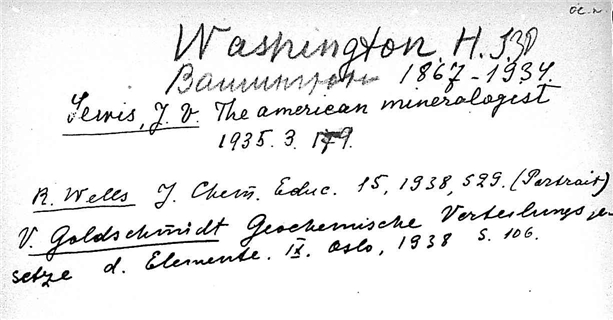 ос. н.
Washington, H.
1867-1934.
Lewis, J. V. The american mineralogist
1935. 3. 179.
R. Wells J. Chem. Educ. 15, 1938, 529. (Portrait)
V. Goldschmidt Geochemische Verteilungsge-
setze d. Elemente. IX. Oslo, 1938 S. 106.